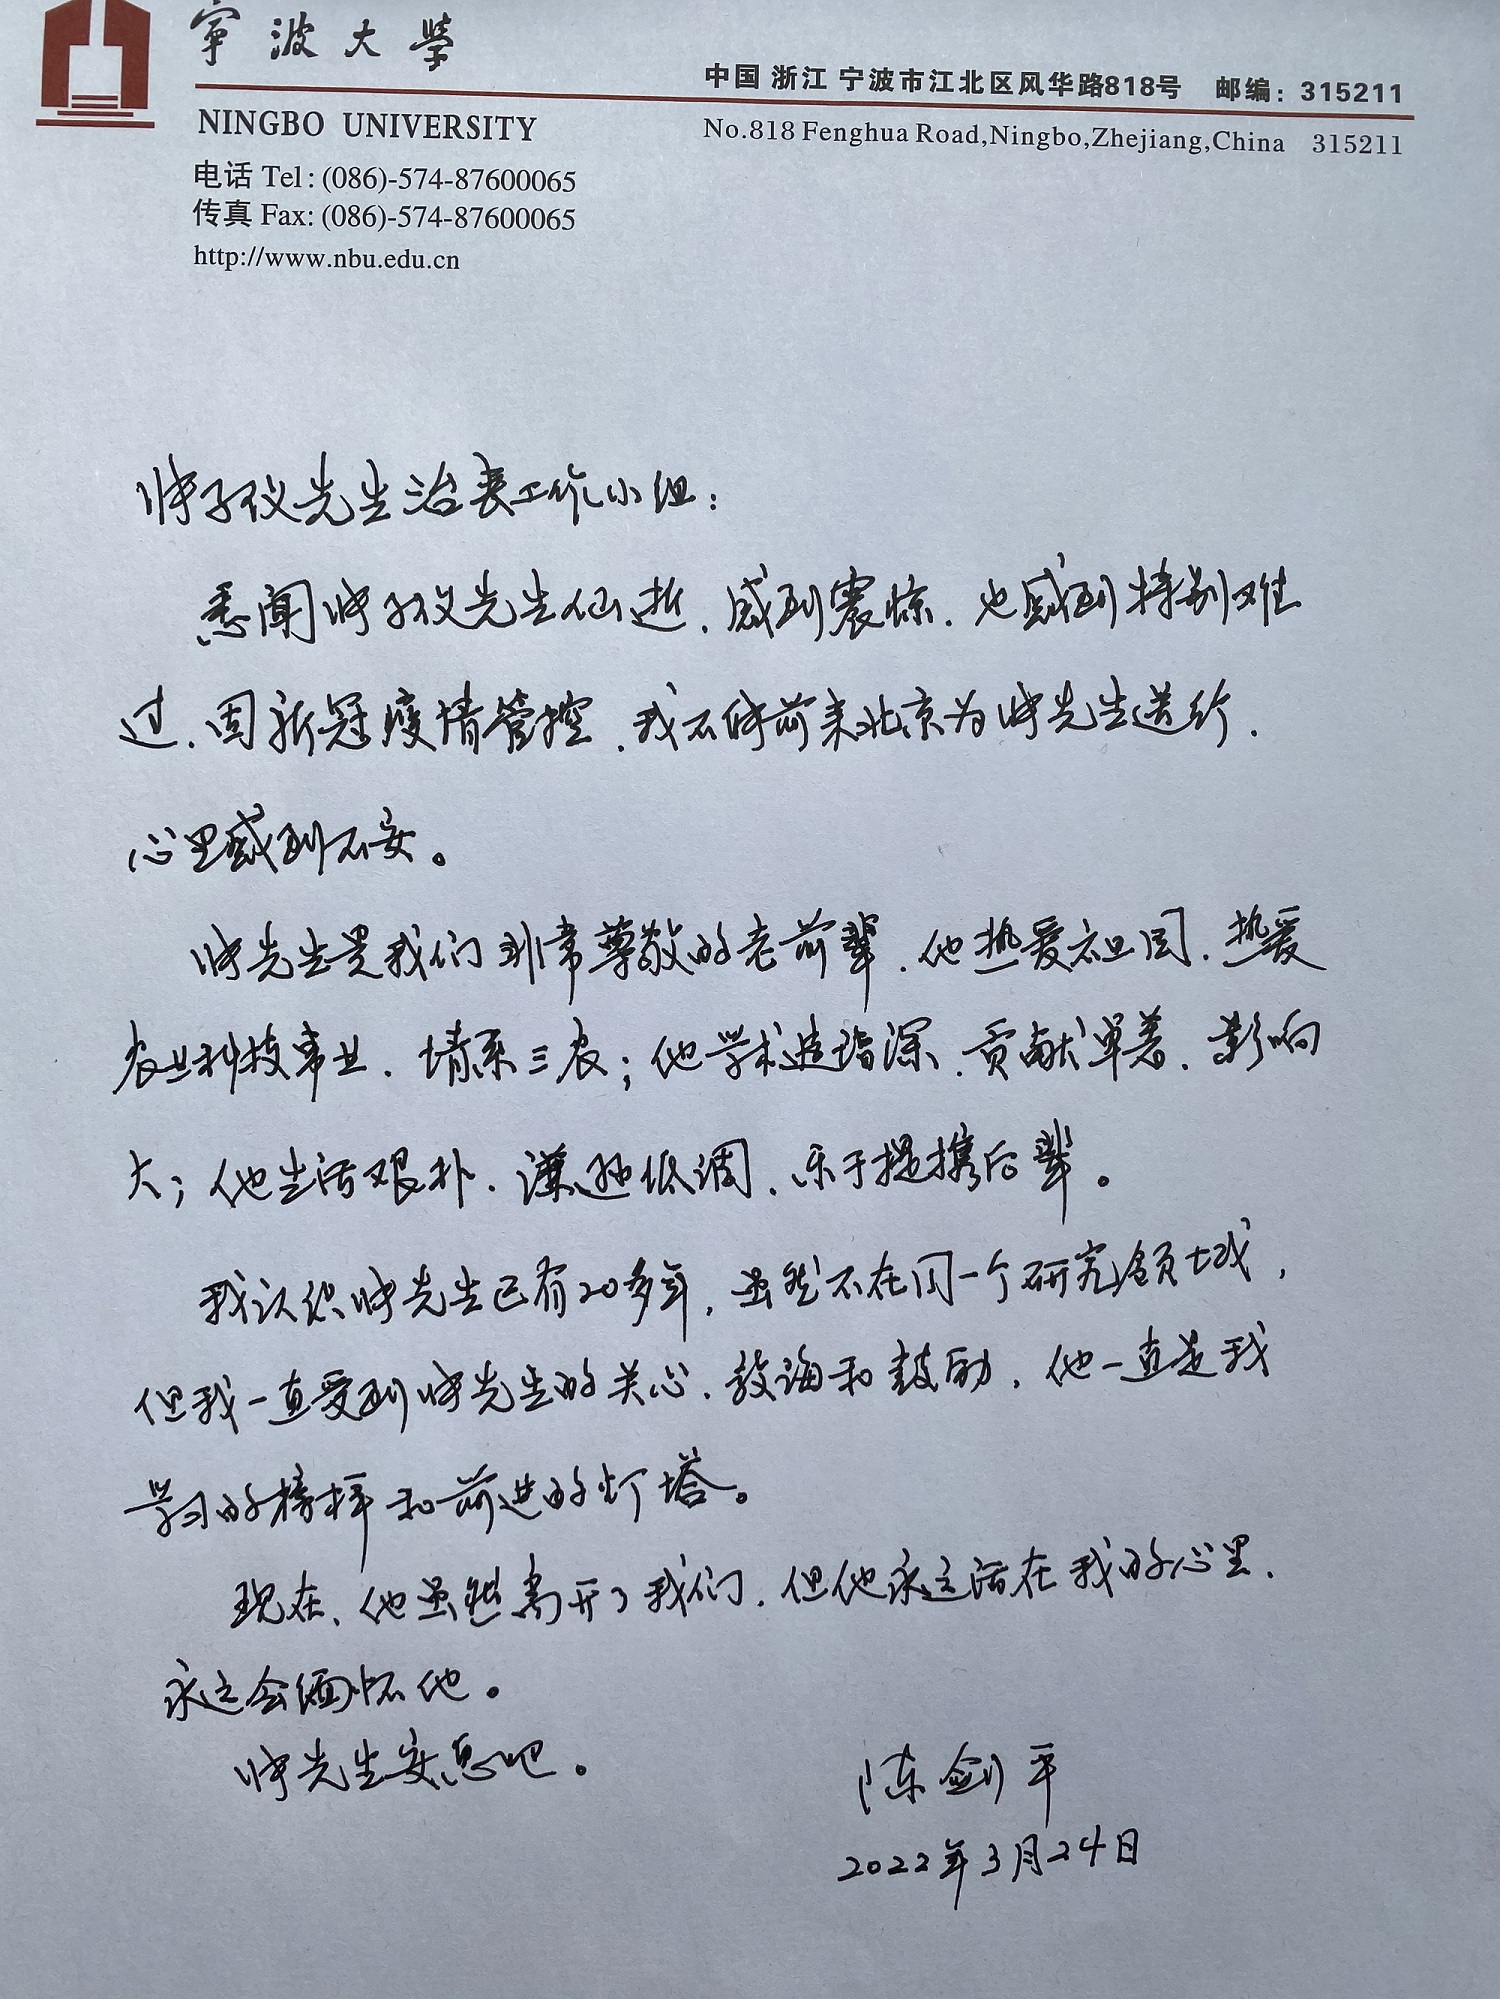 寧波大學
中国 浙江 宁波市江北区风华路818号 邮编: 315211
NINGBO UNIVERSITY
No.818 Fenghua Road,Ningbo,Zhejiang,China 315211
电话 Tel: (086)-574-87600065
传真 Fax: (086)-574-87600065
http://www.nbu.edu.cn
钟子仪先生治丧工作小组:
悉闻先生仙逝,感到震惊,也感到特别难
过,因新冠疫情管控,我不能前来北京为先生送行,
心里感到不安。
先生是我们非常尊敬的老前辈,他热爱祖国,热爱
农业科技事业,情系三农;他学术造诣深,贡献卓著,影响
大;他生活艰朴,谦逊低调,乐于提携后辈。
我认识先生已有20多年,虽然不在同一个研究领域,
但我一直受到先生的关心,教诲和鼓励,他一直是我
学习的榜样和前进的灯塔。
现在,他虽然离开了我们,但他永远活在我的心里,
永远会缅怀他。
先生安息吧。
陈剑平
2022年3月24日